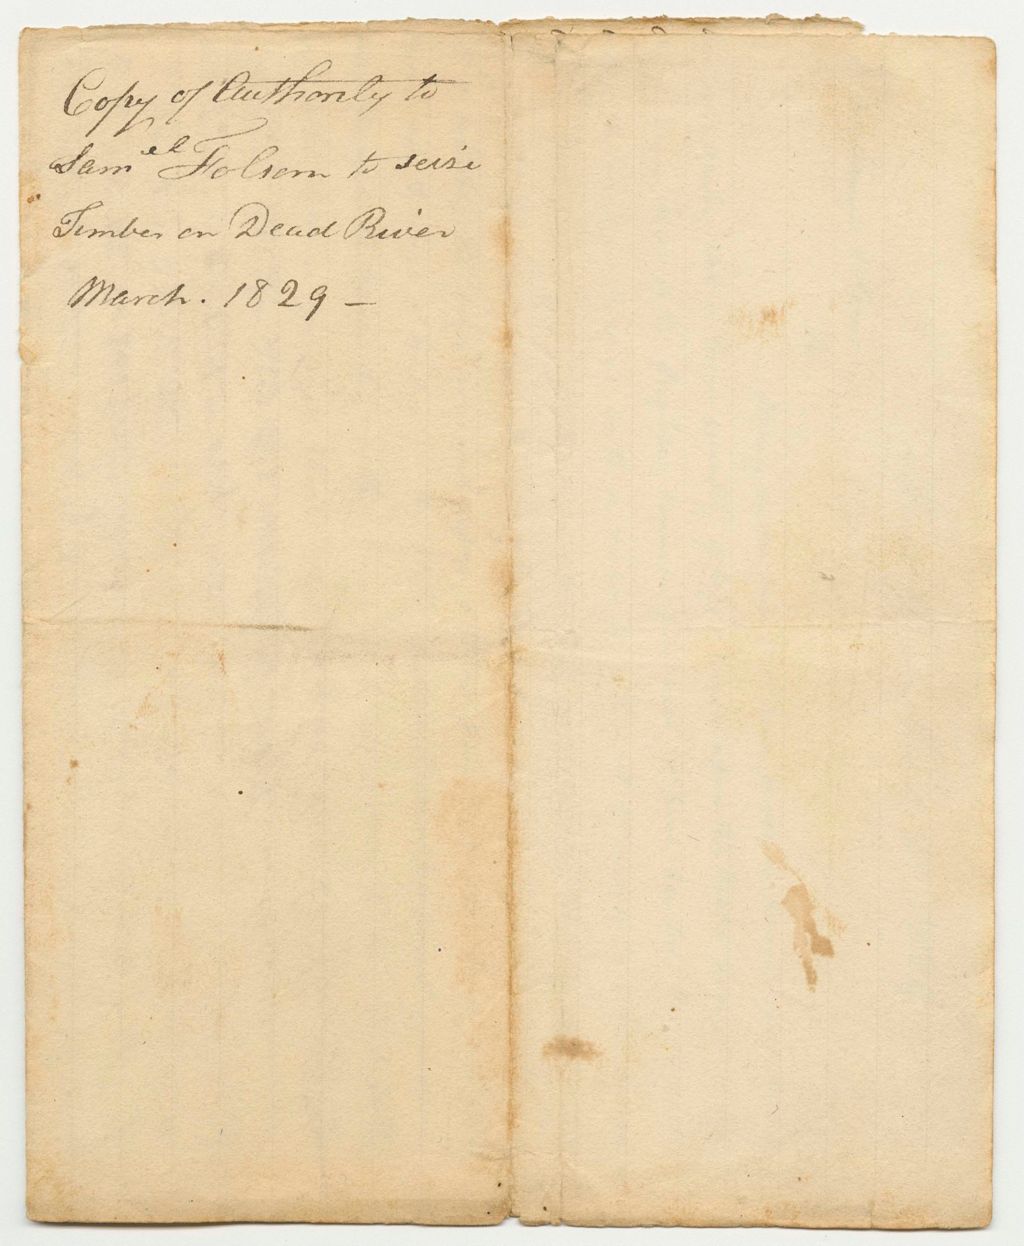 Copy of Authority to
Samel Folsom to seize
Timber on Dead River
March. 1829 —